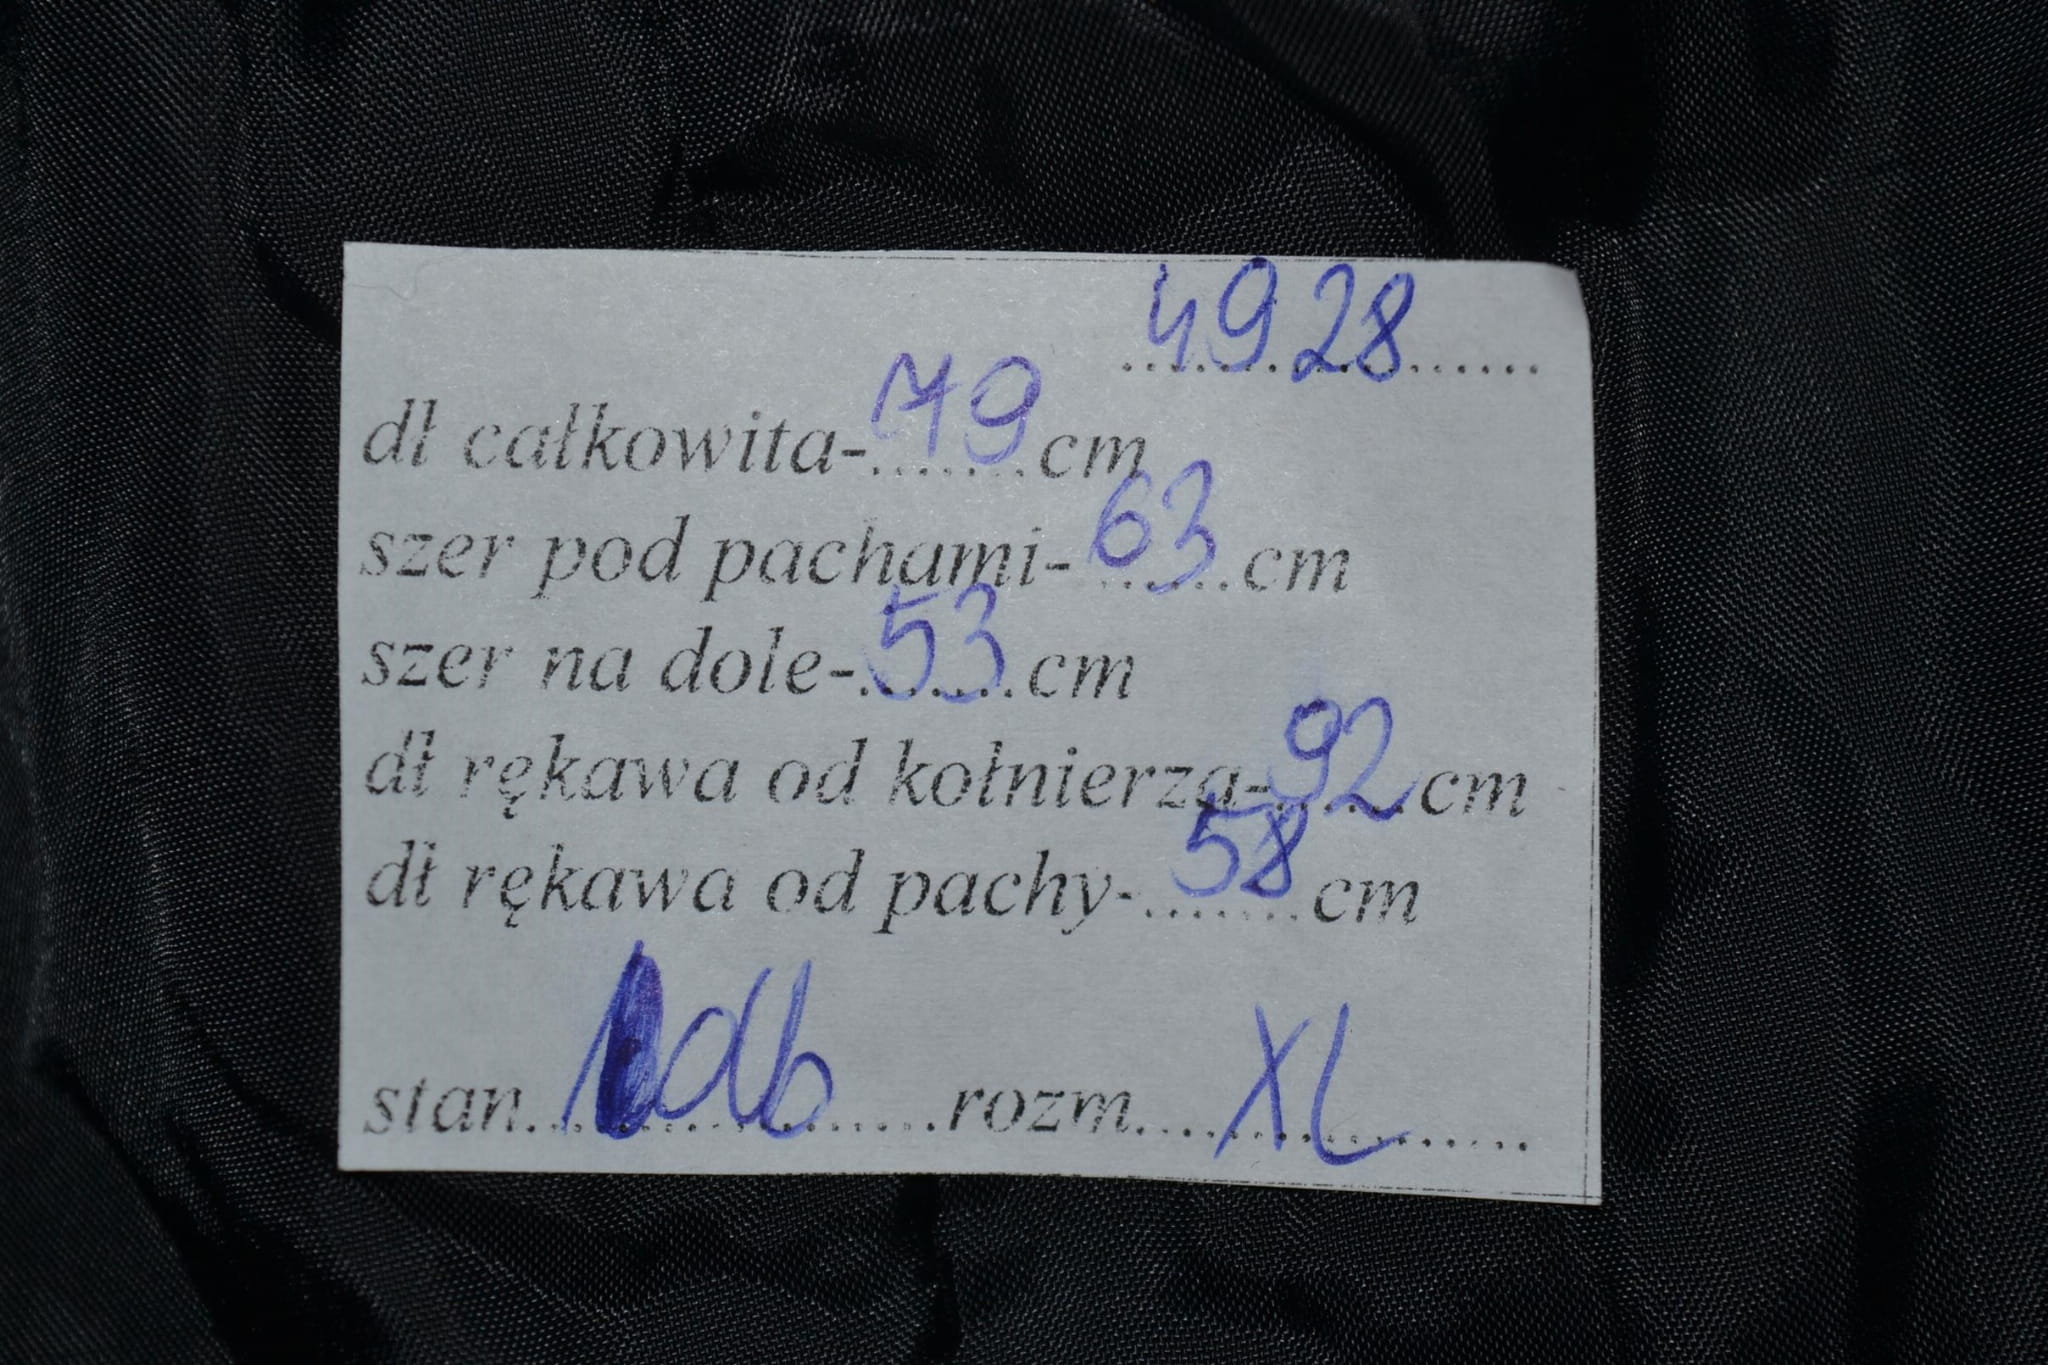 4928
dł całkowita-79cm
szer pod pachami-63cm
szer na dole-53cm
dł rękawa od kołnierza-92cm
dł rękawa od pachy-58cm
stan.......db.......rozm....XL....